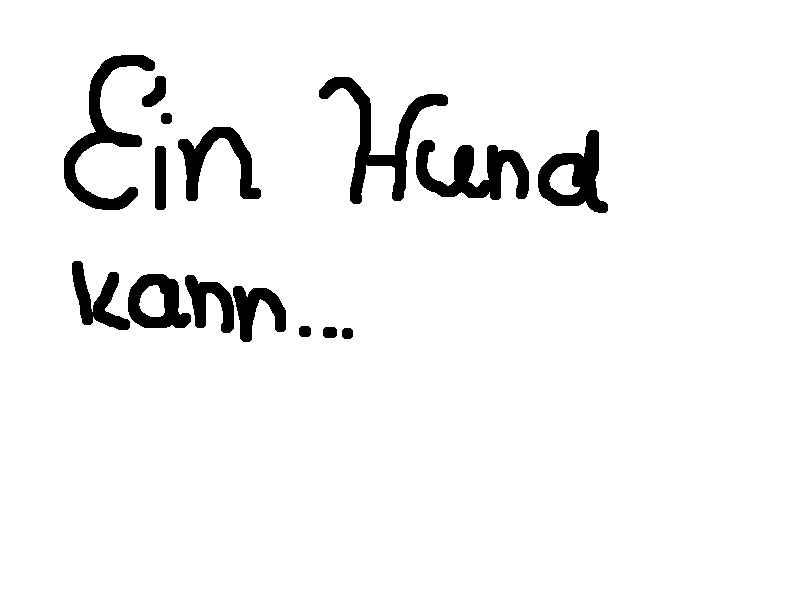 Ein Hund
kann...